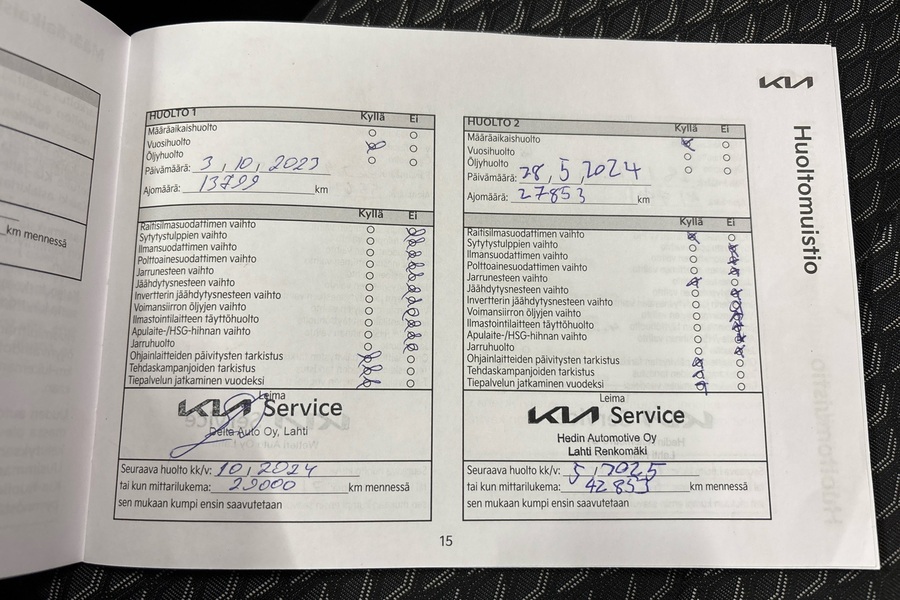 KIA
Huoltomuistio
km mennessä
HUOLTO 1 Kyllä Ei
Määräaikaishuolto
Vuosihuolto
Öljyhuolto
Päivämäärä: 3, 10, 2023
Ajomäärä: 13799 km
Kyllä Ei
Raitisilmasuodattimen vaihto
Sytytystulppien vaihto
Ilmansuodattimen vaihto
Polttoainesuodattimen vaihto
Jarrunesteen vaihto
Jäähdytysnesteen vaihto
Invertterin jäähdytysnesteen vaihto
Voimansiirron öljyjen vaihto
Ilmastointilaitteen täyttöhuolto
Apulaite-/HSG-hihnan vaihto
Jarruhuolto
Ohjainlaitteiden päivitysten tarkistus
Tehdaskampanjoiden tarkistus
Tiepalvelun jatkaminen vuodeksi
Leima
KIA Service
Delta Auto Oy, Lahti
Seuraava huolto kk/v: 10, 2024
tai kun mittarilukema: 29000 km mennessä
sen mukaan kumpi ensin saavutetaan
HUOLTO 2 Kyllä Ei
Määräaikaishuolto
Vuosihuolto
Öljyhuolto
Päivämäärä: 28, 5, 2024
Ajomäärä: 27853 km
Kyllä Ei
Raitisilmasuodattimen vaihto
Sytytystulppien vaihto
Ilmansuodattimen vaihto
Polttoainesuodattimen vaihto
Jarrunesteen vaihto
Jäähdytysnesteen vaihto
Invertterin jäähdytysnesteen vaihto
Voimansiirron öljyjen vaihto
Ilmastointilaitteen täyttöhuolto
Apulaite-/HSG-hihnan vaihto
Jarruhuolto
Ohjainlaitteiden päivitysten tarkistus
Tehdaskampanjoiden tarkistus
Tiepalvelun jatkaminen vuodeksi
Leima
KIA Service
Hedin Automotive Oy
Lahti Renkomäki
Seuraava huolto kk/v: 5, 2025
tai kun mittarilukema: 42853 km mennessä
sen mukaan kumpi ensin saavutetaan
15